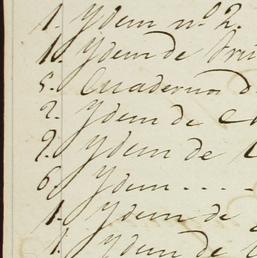 1. Ydem nº 2.
1. Ydem de
5. Cuadernos d
2. Ydem de
2. Ydem de
6. Ydem - - - -
1. Ydem de
1. Ydem de